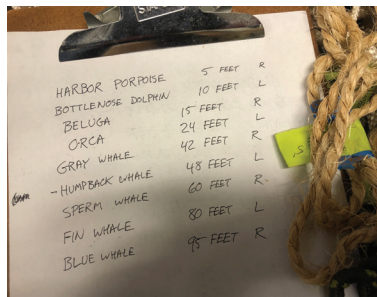 HARBOR PORPOISE 5 FEET R
BOTTLENOSE DOLPHIN 10 FEET L
BELUGA 15 FEET R
ORCA 24 FEET L
GRAY WHALE 42 FEET R
- HUMPBACK WHALE 48 FEET L
SPERM WHALE 60 FEET R
FIN WHALE 80 FEET L
BLUE WHALE 95 FEET R